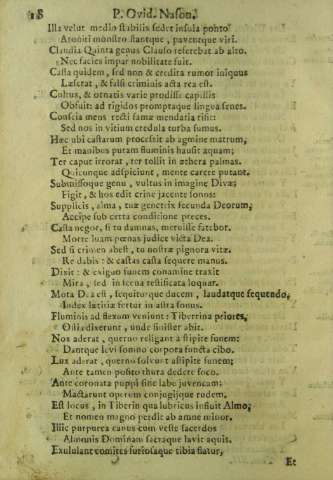 18 P. Ovid. Nason.
Illa velut medio stabilis sedet insula ponto
Attoniti monstro stantque, paventque viri.
Claudia Quinta genus Clauso referebat ab alto.
Nec facies impar nobilitate fuit.
Casta quidem, sed non & credita rumor iniquus
Læserat, & falsi criminis acta rea est.
Cultus, & ornatis varie prodisse capillis
Obfuit: ad rigidos promptaque lingua senes.
Conscia mens recti famæ mendacia risit:
Sed nos in vitium credula turba sumus.
Hæc ubi castarum processit ab agmine matrum,
Et manibus puram fluminis hausit aquam;
Ter caput irrorat, ter tollit in æthera palmas.
Quicunque adspiciunt, mente carere putant.
Submissoque genu, vultus in imagine Divæ
Figit, & hos edit crine jacente sonos:
Supplicis, alma, tuæ genetrix fecunda Deorum,
Accipe sub certa conditione preces.
Casta negor, si tu damnas, meruisse fatebor.
Morte luam pœnas judice victa Dea.
Sed si crimen abest, tu nostræ pignora vitæ
Re dabis: & castas casta sequere manus.
Dixit: & exiguo funem conamine traxit
Mira, sed in scena testificata loquar.
Mota Dea est, sequiturque ducem, laudatque sequendo,
Index lætitiæ fertur in astra sonus.
Fluminis ad flexum veniunt: Tiberina priores,
Ostia dixerunt, unde sinister abit.
Nox aderat, querno religant a stipite funem:
Dantque levi somno corpora functa cibo.
Lux aderat, querno solvunt a stipite funem;
Ante tamen posito thura dedere foco.
Ante coronata puppi sine labe juvencam;
Mactarunt operum conjugiique rudem.
Est locus, in Tiberin qua lubricus influit Almo,
Et nomen magno perdit ab amne minor.
Illic purpurea canus cum veste sacerdos
Almonis Dominam sacraque lavit aquis.
Exululant comites furiosaque tibia flatur,
Et